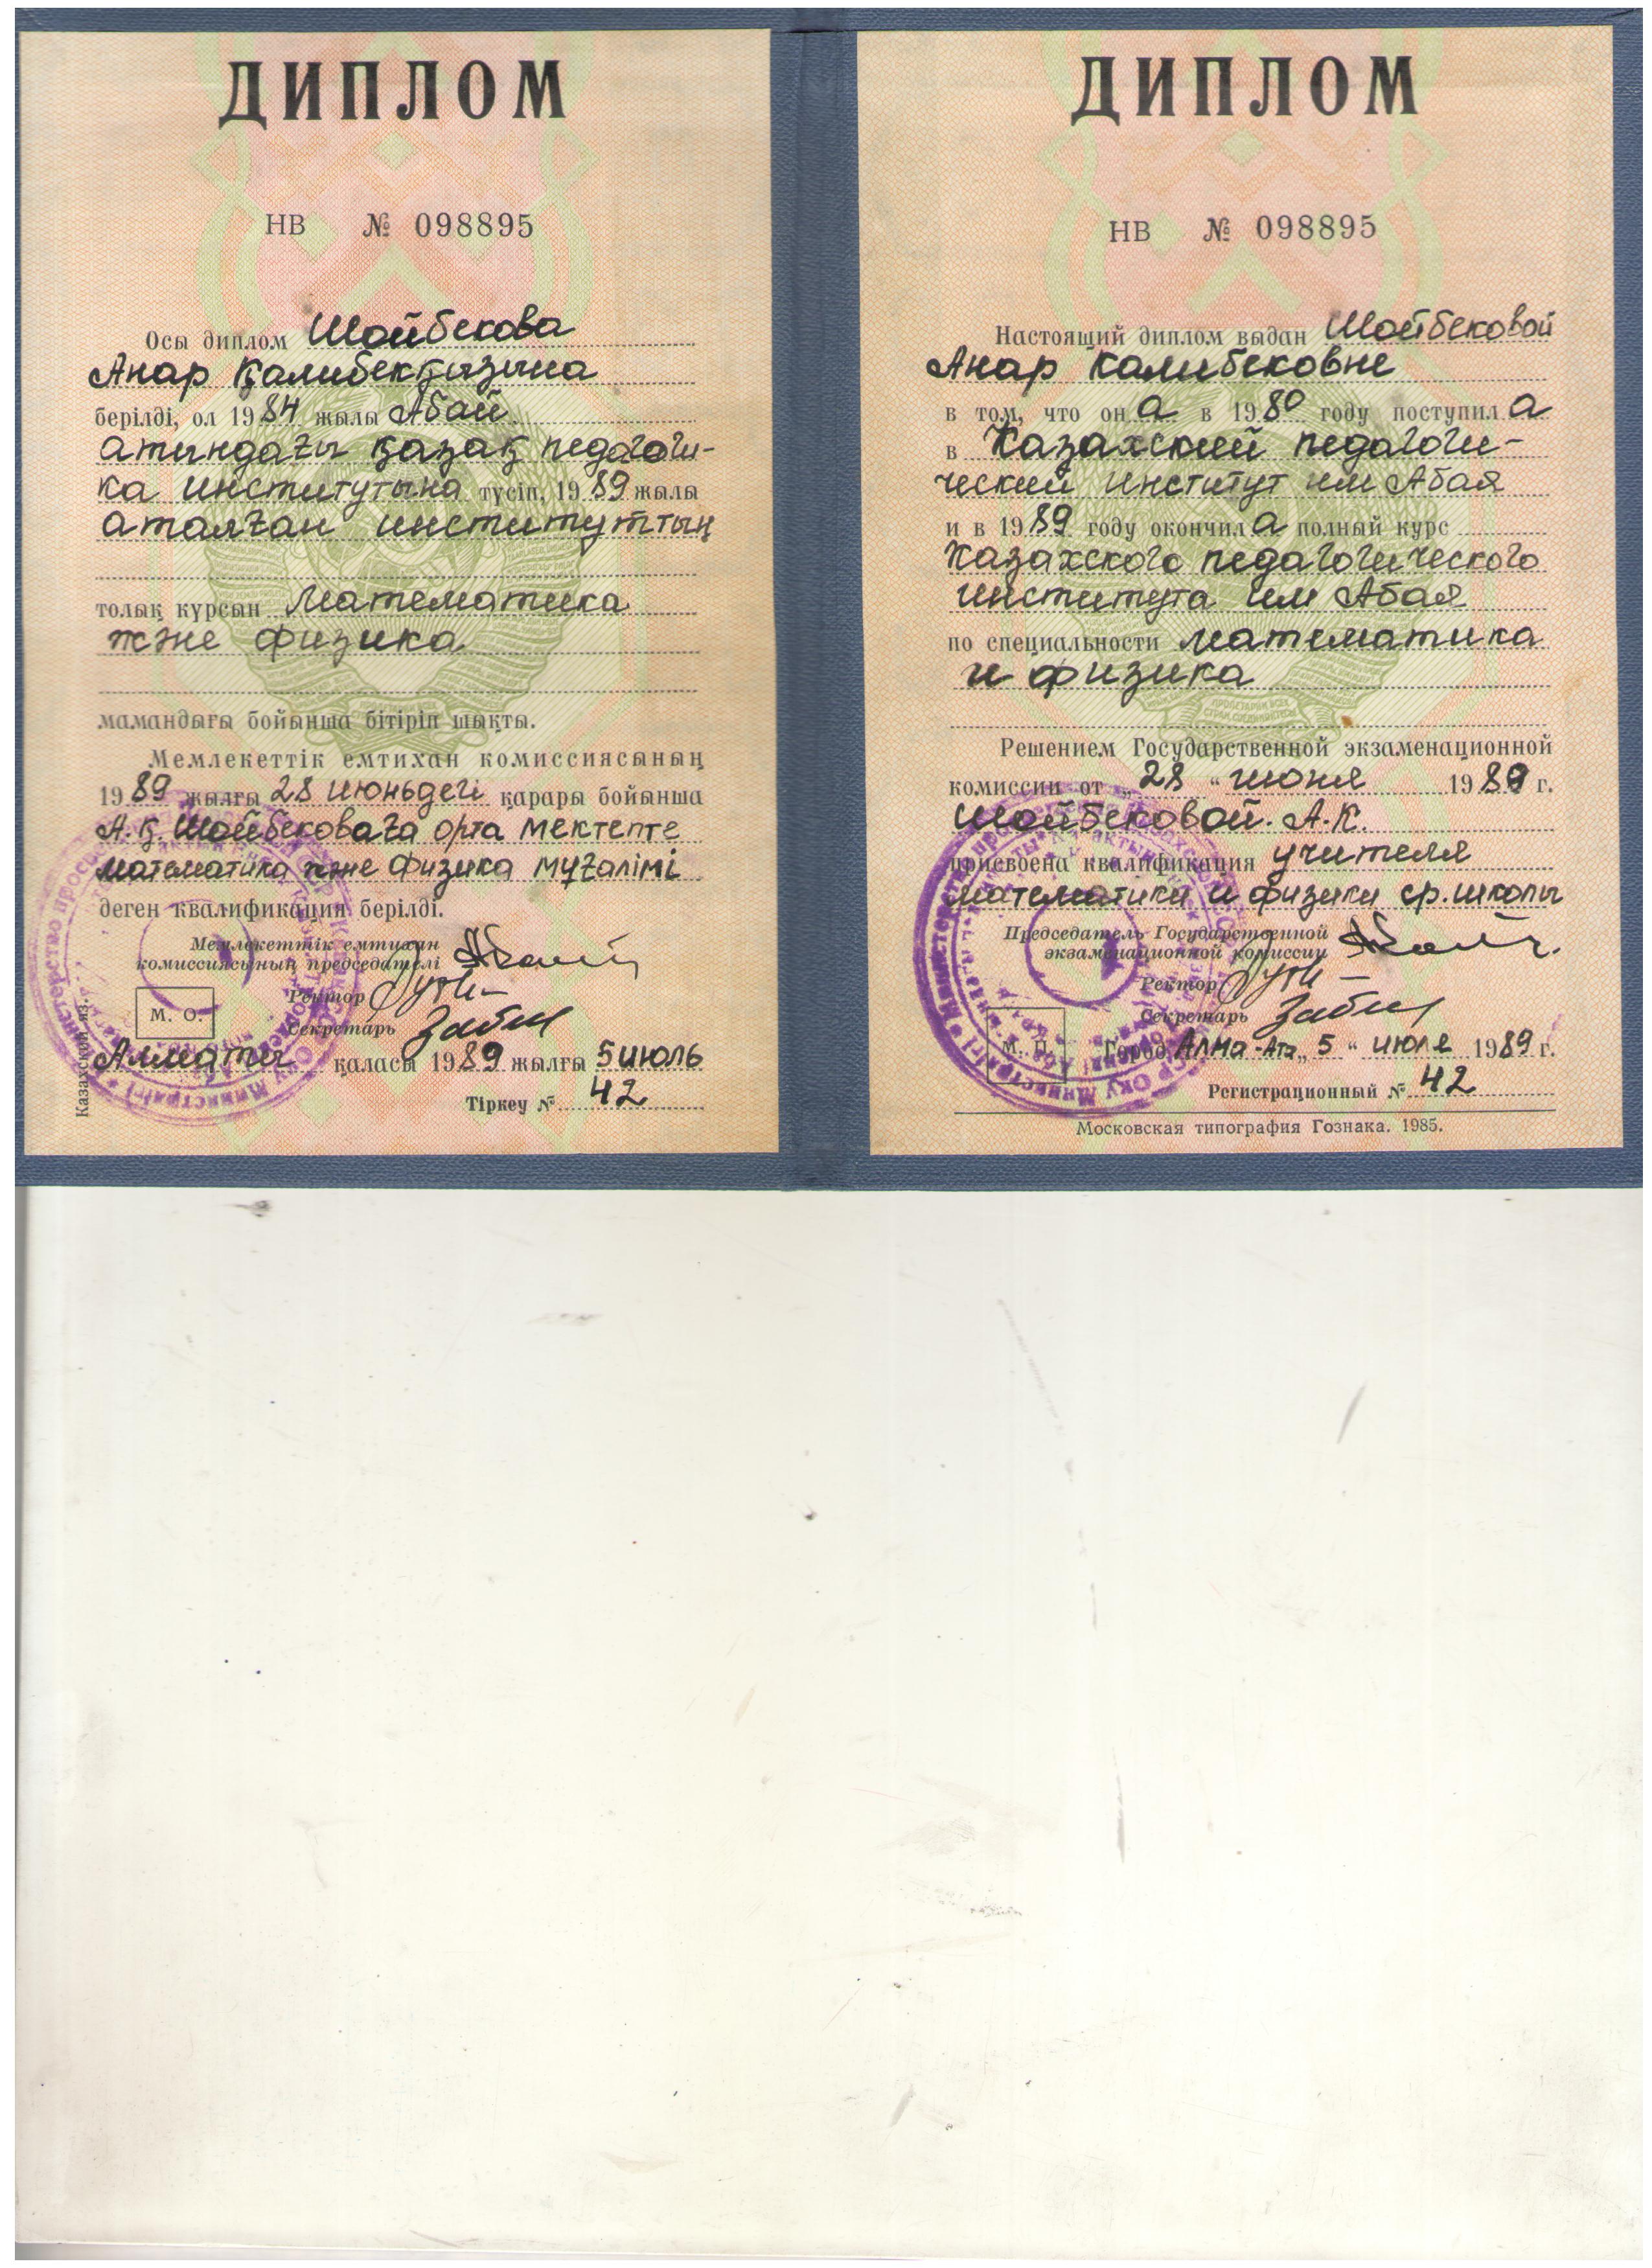 ДИПЛОМ
НВ № 098895
Осы диплом Шойбекова
Анар Қалибекқызына
берілді, ол 1984 жылы Абай
атындағы қазақ педагоги-
ка институтына түсіп, 1989 жылы
аталған институттың
толық курсын математика
және физика
мамандығы бойынша бітіріп шықты.
Мемлекеттік емтихан комиссиясының
1989 жылғы 28 июньдегі қарары бойынша
А.Қ. Шойбековаға орта мектепте
математика және физика мұғалімі
деген квалификация берілді.
Мемлекеттік емтихан
комиссиясының председателі
Ректор
М. О.
Секретарь
Алматы қаласы 1989 жылғы 5 июль
Тіркеу № 42
Казахской яз.
ДИПЛОМ
НВ № 098895
Настоящий диплом выдан Шойбековой
Анар Калибековне
в том, что он а в 1980 году поступил а
в Казахский педагоги-
ческий институт им Абая
и в 1989 году окончил а полный курс
Казахского педагогического
института им Абая
по специальности математика
и физика
Решением Государственной экзаменационной
комиссии от „ 28 “ июня 1989 г.
Шойбековой. А.К.
присвоена квалификация учителя
математики и физики ср. школы
Председатель Государственной
экзаменационной комиссии
Ректор
Секретарь
М. П.
Город Алма-Ата „ 5 “ июля 1989 г.
Регистрационный № 42
Московская типография Гознака. 1985.